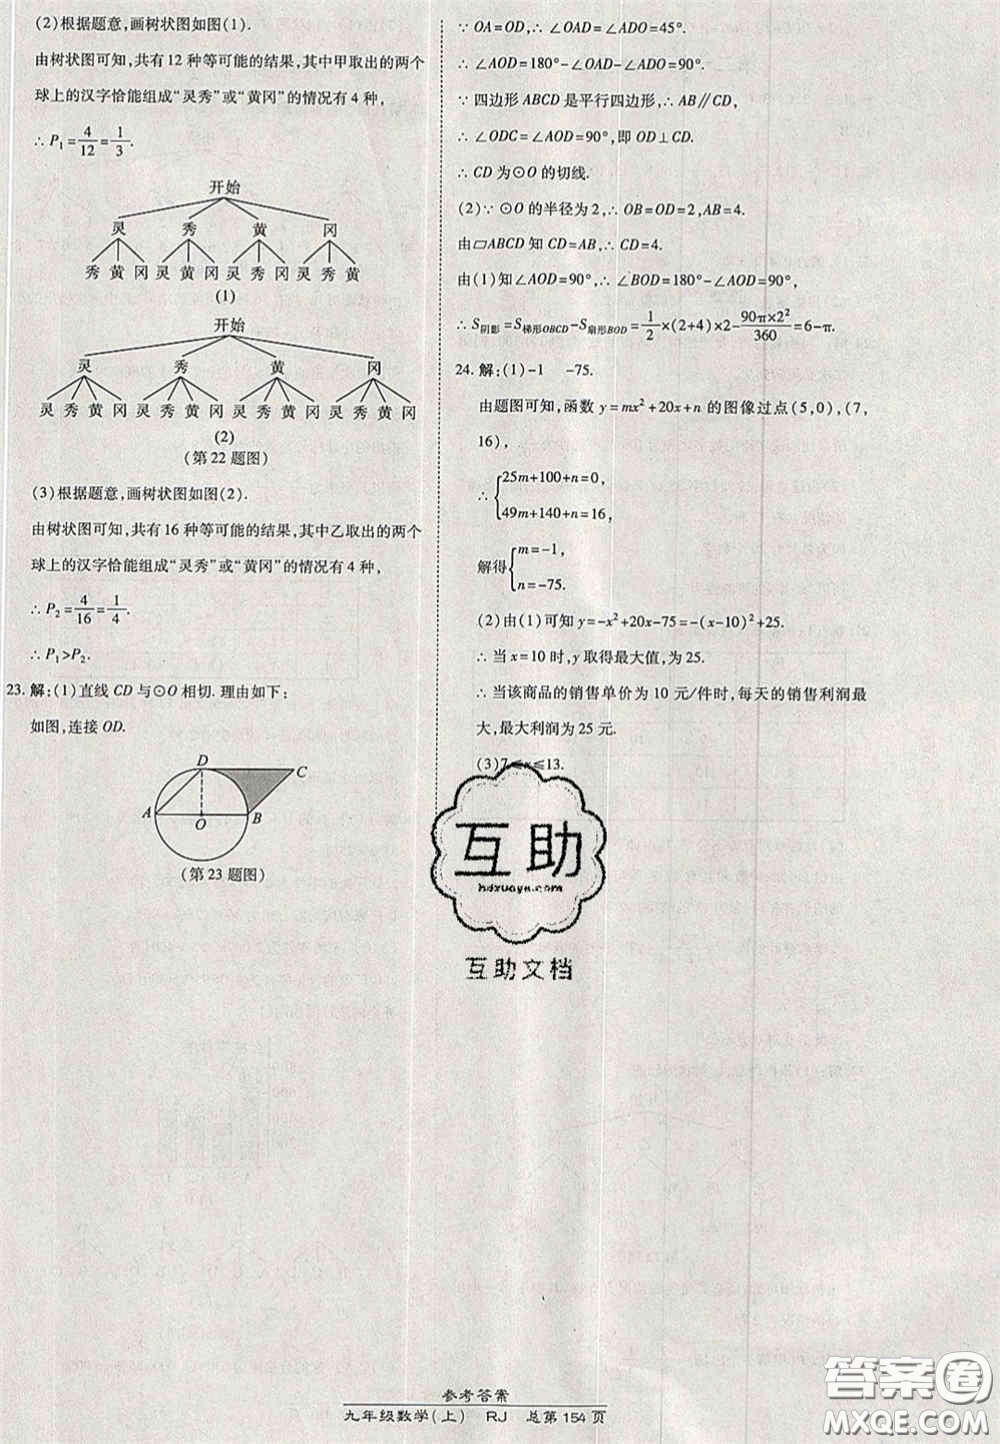 (2)根据题意,画树状图如图(1).
由树状图可知,共有12种等可能的结果,其中甲取出的两个
球上的汉字恰能组成“灵秀”或“黄冈”的情况有4种,
∴ P₁=4/12=1/3.
开始
灵 秀 黄 冈
秀 黄 冈 灵 黄 冈 灵 秀 冈 灵 秀 黄
(1)
开始
灵 秀 黄 冈
灵 秀 黄 冈 灵 秀 黄 冈 灵 秀 黄 冈 灵 秀 黄 冈
(2)
(第22题图)
(3)根据题意,画树状图如图(2).
由树状图可知,共有16种等可能的结果,其中乙取出的两个
球上的汉字恰能组成“灵秀”或“黄冈”的情况有4种,
∴ P₂=4/16=1/4.
∴ P₁>P₂.
23. 解:(1)直线CD与⊙O相切. 理由如下:
如图,连接OD.
D C
A O B
(第23题图)
∵ OA=OD,∴ ∠OAD=∠ADO=45°.
∴ ∠AOD=180°-∠OAD-∠ADO=90°.
∵ 四边形ABCD是平行四边形,∴ AB∥CD,
∴ ∠ODC=∠AOD=90°,即OD⊥CD.
∴ CD为⊙O的切线.
(2)∵ ⊙O的半径为2,∴ OB=OD=2,AB=4.
由▱ABCD知CD=AB,∴ CD=4.
由(1)知∠AOD=90°,∴ ∠BOD=180°-∠AOD=90°,
∴ S阴影=S梯形OBCD-S扇形BOD=1/2×(2+4)×2-90π×2²/360=6-π.
24. 解:(1)-1 -75.
由题图可知,函数y=mx²+20x+n的图像过点(5,0),(7,
16),
∴ {25m+100+n=0,
49m+140+n=16,
解得{m=-1,
n=-75.
(2)由(1)可知y=-x²+20x-75=-(x-10)²+25.
∴ 当x=10时,y取得最大值,为25.
∴ 当该商品的销售单价为10元/件时,每天的销售利润最
大,最大利润为25元.
(3)7≤x≤13.
互助
hdzuoye.com
互助文档
参考答案
九年级数学(上) RJ 总第154页
答案圈
MXQE.COM